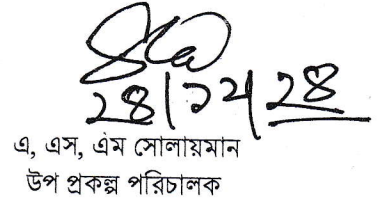 ২৪/১২/২৪
এ, এস, এম সোলায়মান
উপ প্রকল্প পরিচালক